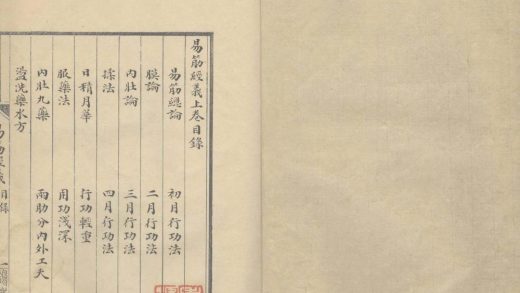 易筋經義上卷目錄
易筋總論
初月行功法
膜論
二月行功法
內壯論
三月行功法
揉法
四月行功法
日精月華
行功輕重
服藥法
用功淺深
內壯丸藥
兩肋分內外工夫
盪洗藥水方
目錄
一